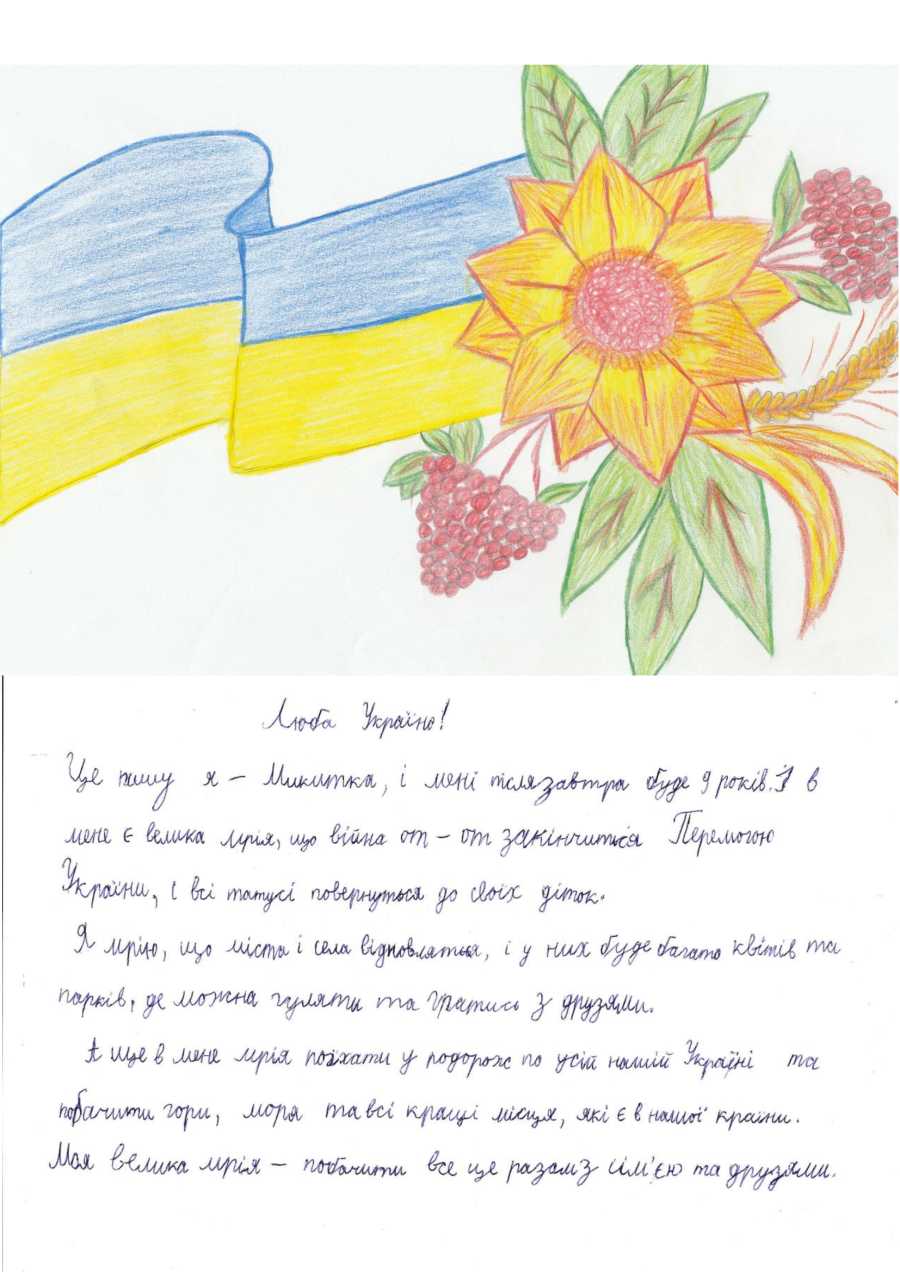 Люба Україно!
Це пишу я – Микитка, і мені післязавтра буде 9 років. І в
мене є велика мрія, що війна от – от закінчиться Перемогою
України, і всі татусі повернуться до своїх діток.
Я мрію, що міста і села відновляться, і у них буде багато квітів та
парків, де можна гуляти та гратись з друзями.
А ще в мене мрія поїхати у подорож по усій нашій Україні та
побачити гори, моря та всі кращі місця, які є в нашої країни.
Моя велика мрія – побачити все це разом з сім'єю та друзями.